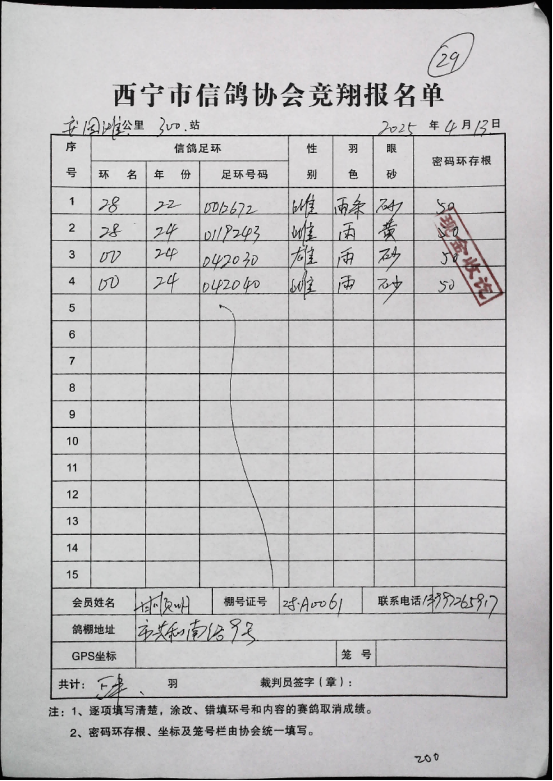 29
西宁市信鸽协会竞翔报名单
公里 300. 站 2025 年 4 月 13 日
序号 信鸽足环 性别 羽色 眼砂 密码环存根
环名 年份 足环号码
1 28 22 0012672 雌 雨条 砂 50
2 28 24 0119243 雌 雨 黄 50
3 00 24 042030 雄 雨 砂 50
4 00 24 042040 雌 雨 砂 50
现金收讫
5
6
7
8
9
10
11
12
13
14
15
会员姓名 棚号证号 28-A0061 联系电话 13997265917
鸽棚地址 市共和南路9号
GPS坐标 笼号
共计: 羽 裁判员签字(章):
注:1、逐项填写清楚,涂改、错填环号和内容的赛鸽取消成绩。
2、密码环存根、坐标及笼号栏由协会统一填写。
200